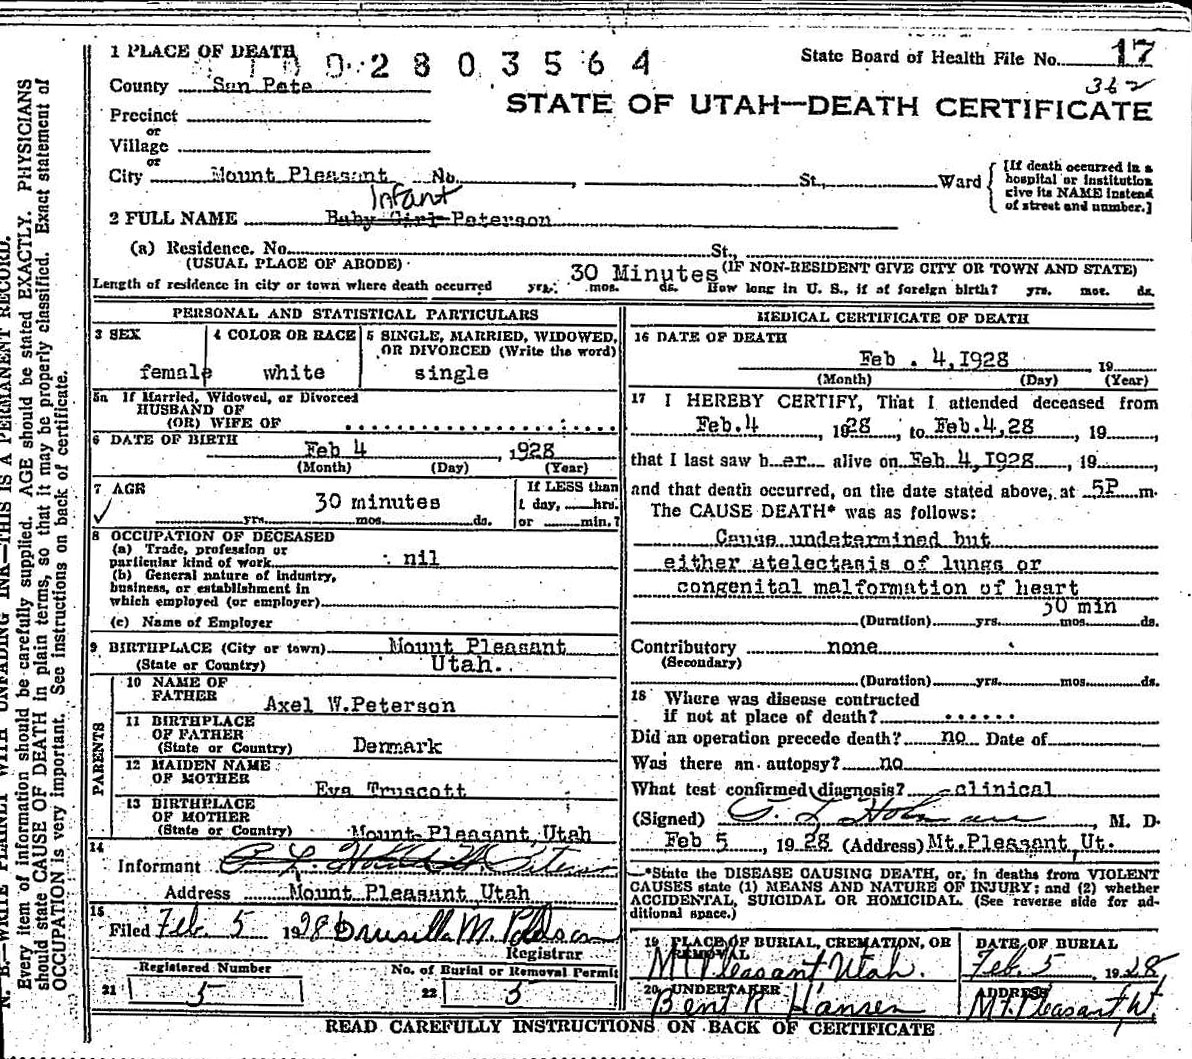 1 PLACE OF DEATH
2803564
State Board of Health File No. 17
362
County San Pete
STATE OF UTAH—DEATH CERTIFICATE
Precinct
or
Village
or
City Mount Pleasant No. , St., Ward
[If death occurred in a hospital or institution give its NAME instead of street and number.]
Infant
2 FULL NAME Baby Girl Peterson
(a) Residence. No. St.,
(USUAL PLACE OF ABODE)
(IF NON-RESIDENT GIVE CITY OR TOWN AND STATE)
30 Minutes
Length of residence in city or town where death occurred yrs. mos. ds. How long in U. S., if of foreign birth? yrs. mos. ds.
PERSONAL AND STATISTICAL PARTICULARS
3 SEX
female
4 COLOR OR RACE
white
5 SINGLE, MARRIED, WIDOWED, OR DIVORCED (Write the word)
single
5a If Married, Widowed, or Divorced
HUSBAND OF
(OR) WIFE OF
6 DATE OF BIRTH
Feb 4 , 1928
(Month) (Day) (Year)
7 AGE
30 minutes
yrs. mos. ds.
If LESS than
1 day, hrs.
or min.?
8 OCCUPATION OF DECEASED
(a) Trade, profession or
particular kind of work nil
(b) General nature of industry,
business, or establishment in
which employed (or employer)
(c) Name of Employer
9 BIRTHPLACE (City or town) Mount Pleasant
(State or Country) Utah.
PARENTS
10 NAME OF
FATHER Axel W.Peterson
11 BIRTHPLACE
OF FATHER
(State or Country) Denmark
12 MAIDEN NAME
OF MOTHER Eva Truscott
13 BIRTHPLACE
OF MOTHER
(State or Country) Mount Pleasant,Utah
14
Informant
Address Mount Pleasant,Utah
15
Filed Feb. 5 1928 Drusilla M.
Registrar
Registered Number
21 5
No. of Burial or Removal Permit
22 5
MEDICAL CERTIFICATE OF DEATH
16 DATE OF DEATH
Feb . 4,1928 , 19
(Month) (Day) (Year)
17 I HEREBY CERTIFY, That I attended deceased from
Feb.4 , 1928 , to Feb.4,28 , 19 ,
that I last saw her alive on Feb 4,1928 , 19 ,
and that death occurred, on the date stated above, at 5P m.
The CAUSE DEATH* was as follows:
Cause undetermined but
either atelectasis of lungs or
congenital malformation of heart
30 min
(Duration) yrs. mos. ds.
Contributory none
(Secondary)
(Duration) yrs. mos. ds.
18 Where was disease contracted
if not at place of death? ......
Did an operation precede death? no Date of
Was there an autopsy? no
What test confirmed diagnosis? clinical
(Signed) , M. D.
Feb 5 , 1928 (Address) Mt.Pleasant,Ut.
*State the DISEASE CAUSING DEATH, or, in deaths from VIOLENT
CAUSES state (1) MEANS AND NATURE OF INJURY; and (2) whether
ACCIDENTAL, SUICIDAL OR HOMICIDAL. (See reverse side for additional space.)
19 PLACE OF BURIAL, CREMATION, OR
REMOVAL
Mt Pleasant Utah.
DATE OF BURIAL
Feb. 5 1928
20 UNDERTAKER
Bent R Hansen
ADDRESS
Mt. Pleasant, Ut.
READ CAREFULLY INSTRUCTIONS ON BACK OF CERTIFICATE
N. B.—WRITE PLAINLY WITH UNFADING INK—THIS IS A PERMANENT RECORD.
Every item of information should be carefully supplied. AGE should be stated EXACTLY. PHYSICIANS
should state CAUSE OF DEATH in plain terms, so that it may be properly classified. Exact statement of
OCCUPATION is very important. See instructions on back of certificate.